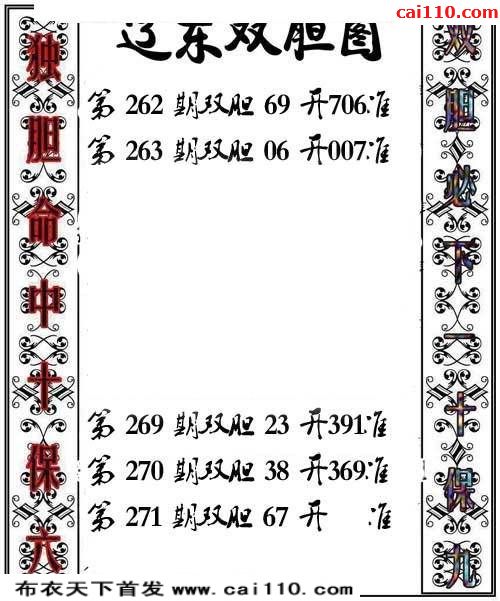 cai110.com
辽东双胆图
独胆命中十保六
第 262 期双胆 69 开706准
第 263 期双胆 06 开007准
第 269 期双胆 23 开391准
第 270 期双胆 38 开369准
第 271 期双胆 67 开 准
双胆必下一十保九
布衣天下首发 www.cai110.com